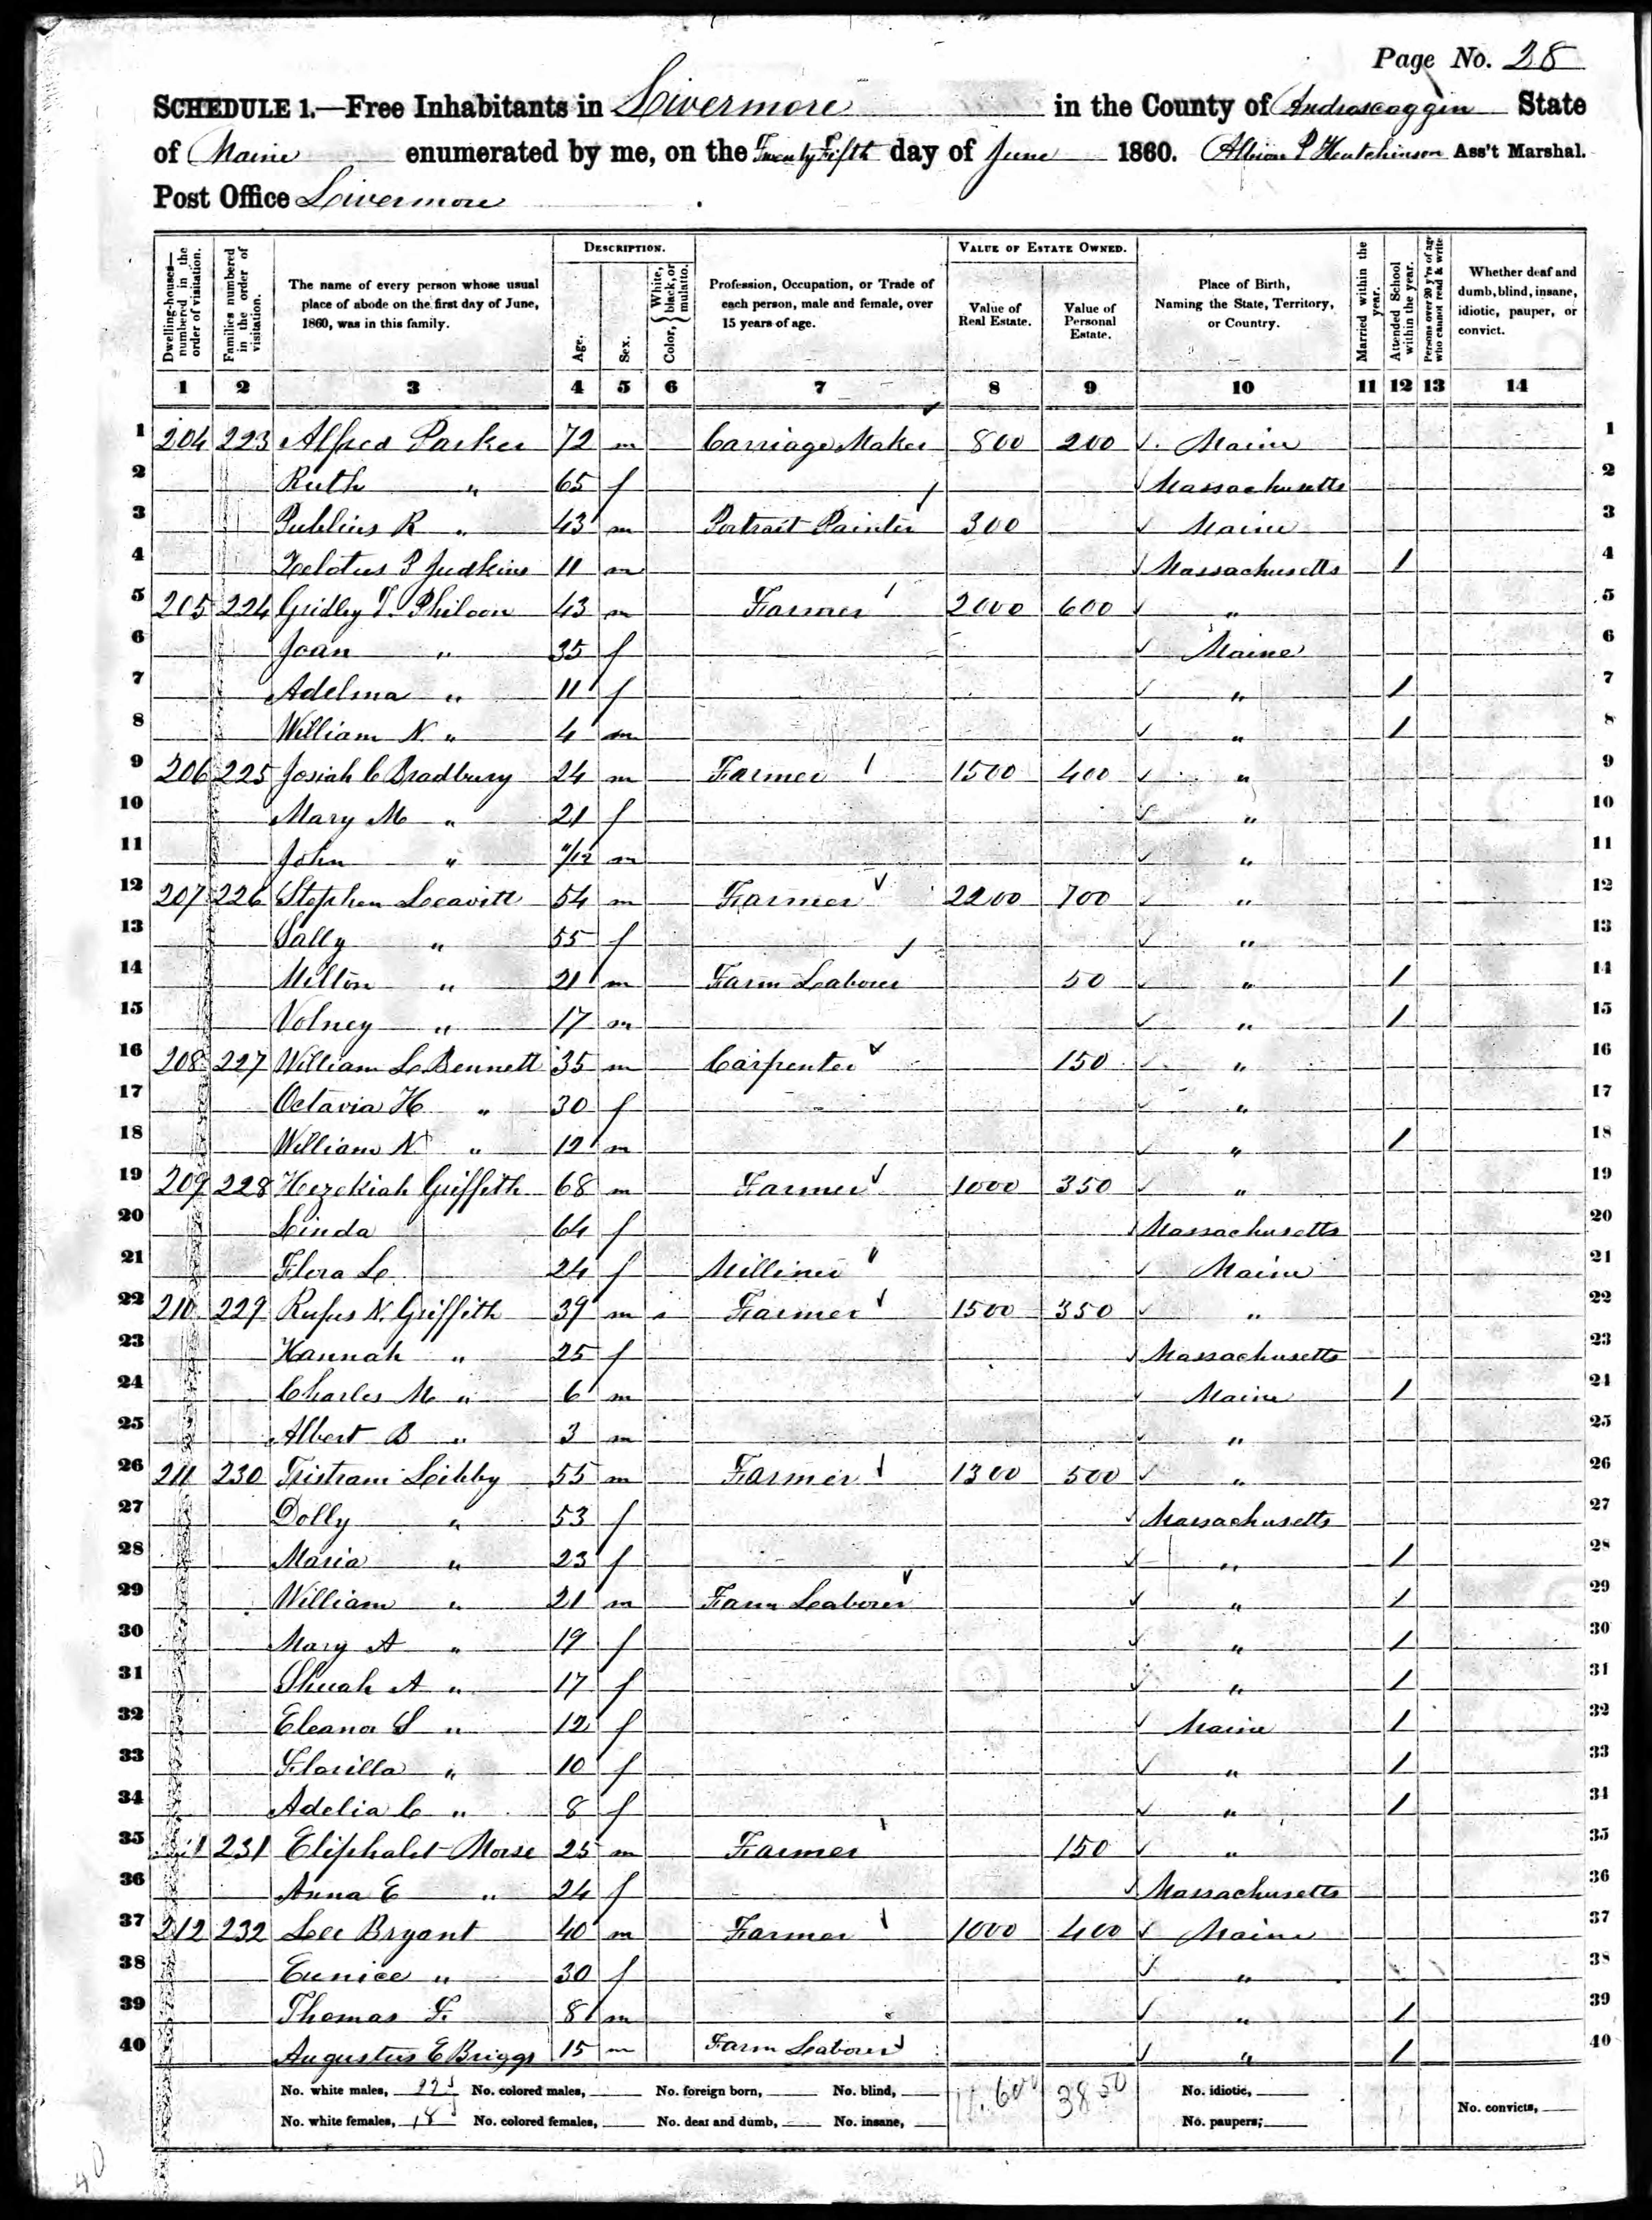 Page No. 28
SCHEDULE 1.—Free Inhabitants in Livermore in the County of Androscoggin State
of Maine enumerated by me, on the Twenty Fifth day of June 1860. Albion P Hutchinson Ass't Marshal.
Post Office Livermore
Dwelling-houses—numbered in the order of visitation.
Families numbered in the order of visitation.
The name of every person whose usual place of abode on the first day of June, 1860, was in this family.
DESCRIPTION.
Age.
Sex.
Color, { White, black, or mulatto.
Profession, Occupation, or Trade of each person, male and female, over 15 years of age.
VALUE OF ESTATE OWNED.
Value of Real Estate.
Value of Personal Estate.
Place of Birth, Naming the State, Territory, or Country.
Married within the year.
Attended School within the year.
Persons over 20 y'rs of age who cannot read & write.
Whether deaf and dumb, blind, insane, idiotic, pauper, or convict.
1 2 3 4 5 6 7 8 9 10 11 12 13 14
1 204 223 Alfred Parker 72 m Carriage Maker 800 200 Maine 1
2 Ruth " 65 f Massachusetts 2
3 Publius R " 43 m Portrait Painter 300 Maine 3
4 Zelotus P Judkins 11 m Massachusetts 1 4
5 205 224 Gridley T. Philoon 43 m Farmer 2000 600 " 5
6 Joan " 35 f Maine 6
7 Adelma " 11 f " 1 7
8 William N " 4 m " 1 8
9 206 225 Josiah C Bradbury 24 m Farmer 1500 400 " 9
10 Mary M " 21 f " 10
11 John " 11/12 m " 11
12 207 226 Stephen Leavitt 54 m Farmer 2200 700 " 12
13 Sally " 55 f " 13
14 Milton " 21 m Farm Laborer 50 " 1 14
15 Volney " 17 m " 1 15
16 208 227 William L Bennett 35 m Carpenter 150 " 16
17 Octavia H " 30 f " 17
18 William N " 12 m " 1 18
19 209 228 Hezekiah Griffith 68 m Farmer 1000 350 " 19
20 Linda 64 f Massachusetts 20
21 Flora L 24 f Milliner Maine 21
22 210 229 Rufus N. Griffith 39 m Farmer 1500 350 " 22
23 Hannah " 25 f Massachusetts 23
24 Charles M " 6 m Maine 1 24
25 Albert B " 3 m " 25
26 211 230 Tristram Libby 55 m Farmer 1300 500 " 26
27 Dolly " 53 f Massachusetts 27
28 Maria " 23 f " 1 28
29 William " 21 m Farm Laborer " 1 29
30 Mary A " 19 f " 1 30
31 Shuah A " 17 f " 1 31
32 Eleanor S " 12 f Maine 1 32
33 Florilla " 10 f " 1 33
34 Adelia C " 8 f " 1 34
35 231 Eliphalet Morse 25 m Farmer 150 " 35
36 Anna E " 24 f Massachusetts 36
37 212 232 Lee Bryant 40 m Farmer 1000 400 Maine 37
38 Eunice " 30 f " 38
39 Thomas F. 8 m " 1 39
40 Augustus E Briggs 15 m Farm Laborer " 1 40
No. white males, 22 No. colored males, No. foreign born, No. blind, 11.600 3850 No. idiotic,
No. white females, 18 No. colored females, No. deaf and dumb, No. insane, No. paupers, No. convicts,
40